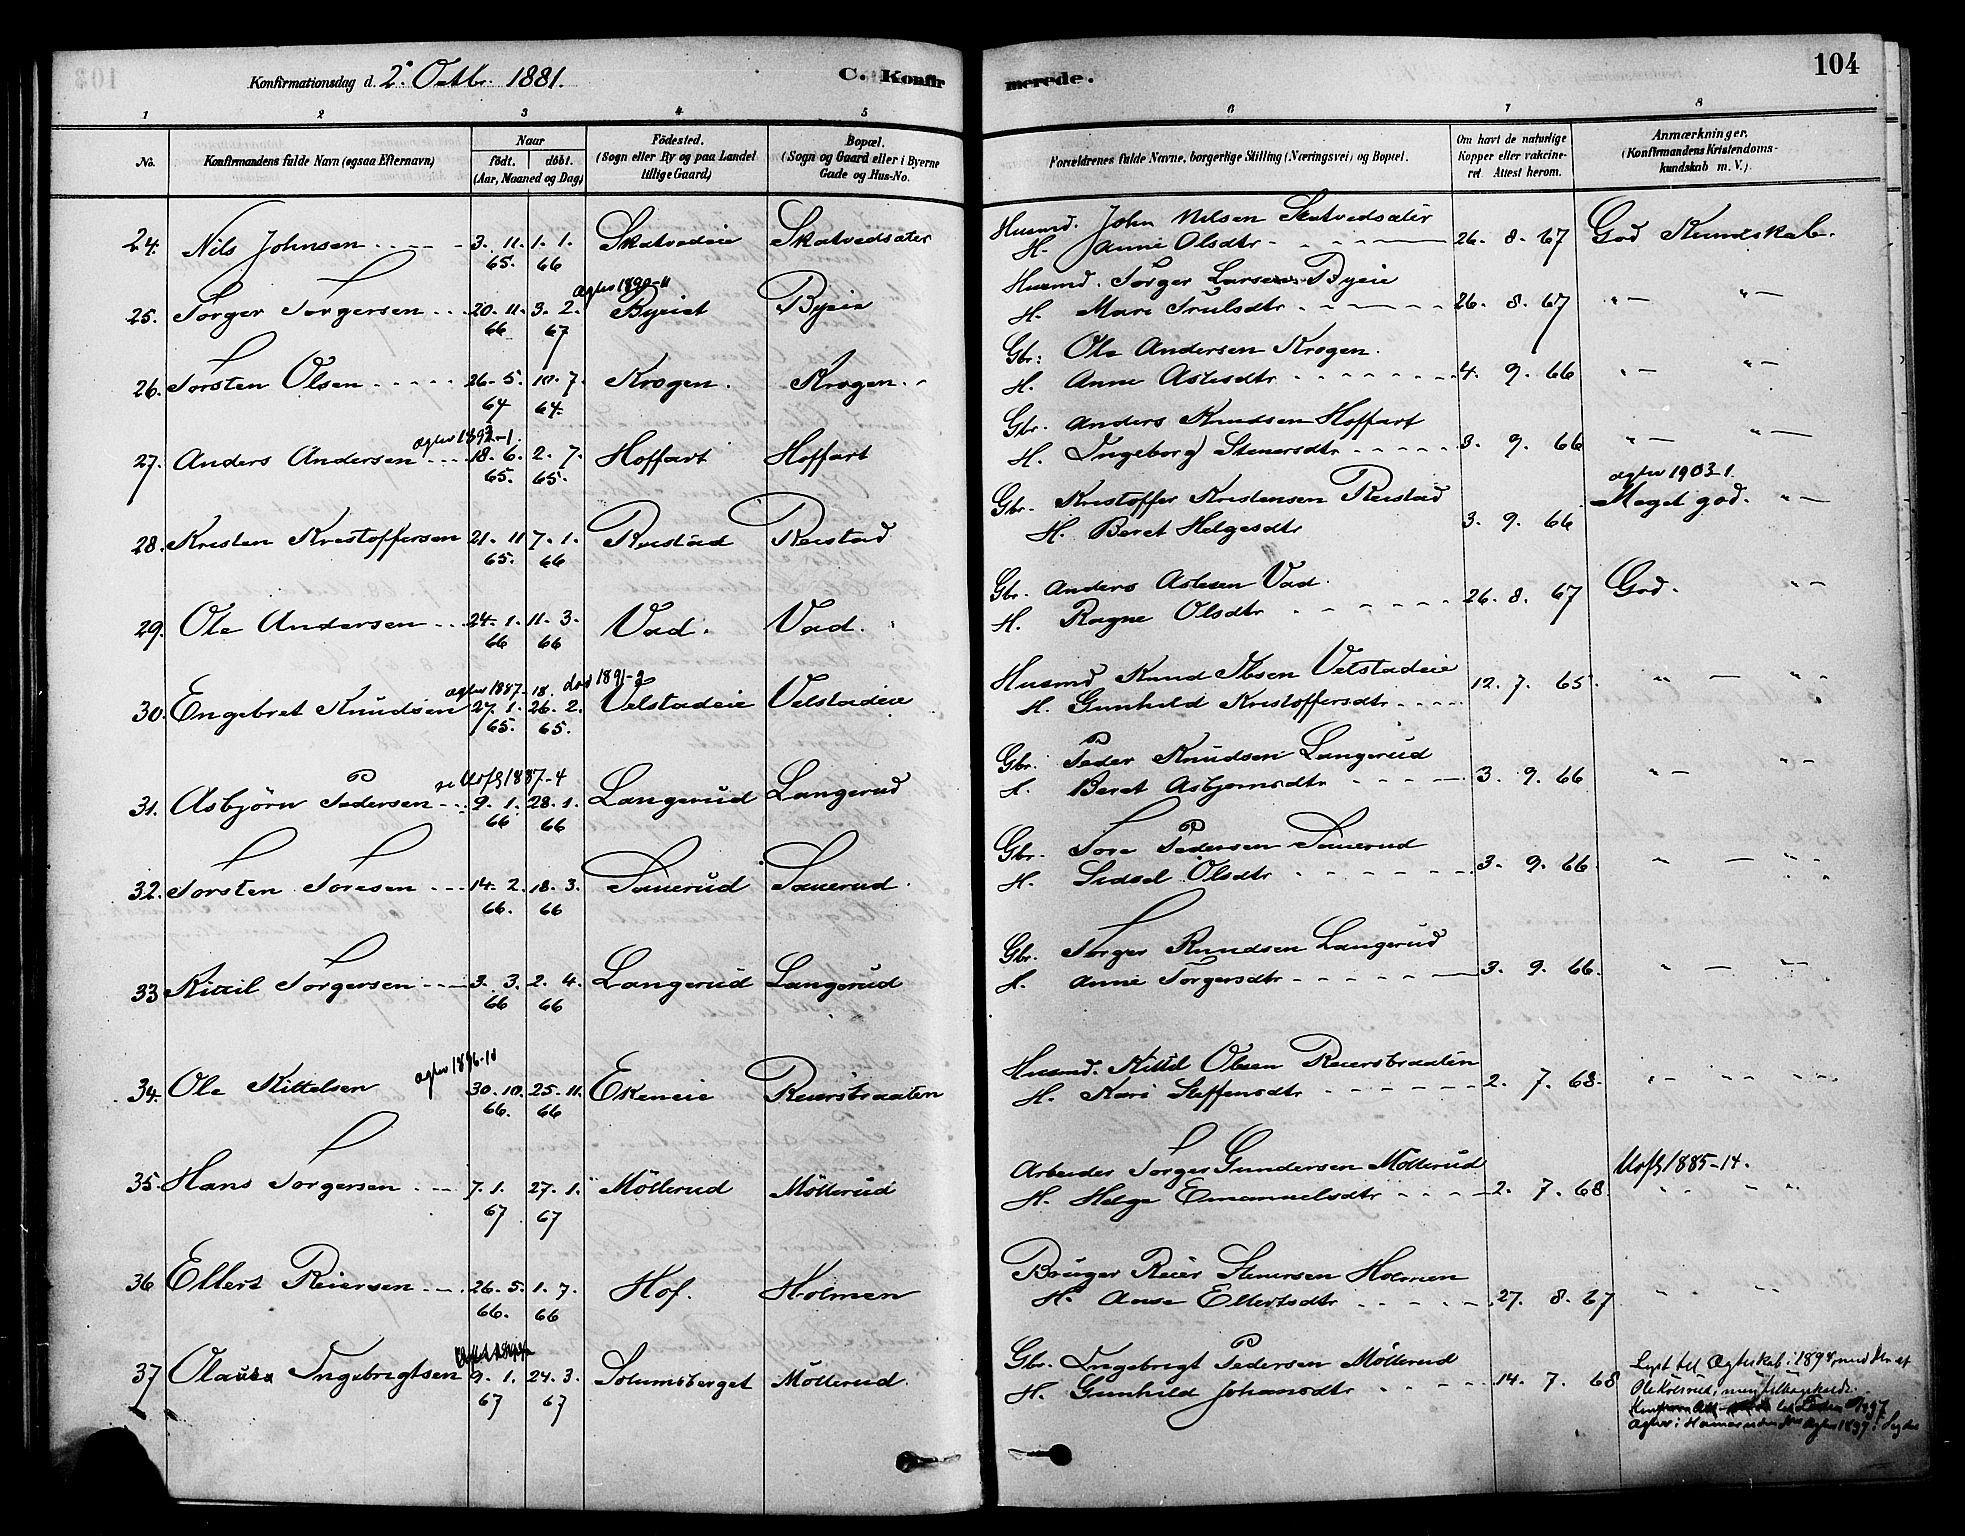 Konfirmationsdag d. 2. Octbr. 1881.
C. Konfir
merede.
104
1 2 3 4 5 6 7 8
No. Konfirmandens fulde Navn (ogsaa Efternavn) Naar födt. döbt. (Aar, Maaned og Dag) Födested. (Sogn eller By og paa Landet tillige Gaard) Bopæl. (Sogn og Gaard eller i Byerne Gade og Hus-No. Forældrenes fulde Navne, borgerlige Stilling (Næringsvei) og Bopæl. Om havt de naturlige Kopper eller vakcineret. Attest herom. Anmærkninger. (Konfirmandens Kristendomskundskab m. V.).
24. Nils Johnsen 3. 11. 65. 1. 1. 66 Skatvedeie Skatvedsæter Husmd. John Nilsen Skatvedsæter
H. Anne Olsdtr 26. 8. 67 God Kundskab.
ægtev 1890-11
25. Torger Torgersen 20. 11. 66 3. 2. 67 Byeiet Byeie Husmd. Torger Larsen Byeie
H. Mari Trulsdtr 26. 8. 67 " — " —
26. Torsten Olsen 26. 5. 64 10. 7. 64. Krogen. Krogen. Gbr. Ole Andersen Krogen.
H. Anne Aslesdtr 4. 9. 66 " — " —
27. Anders Andersen 18. 6. 65. 2. 7. 65. Hoffart Hoffart Gbr. Anders Knudsen Hoffart
H. Ingeborg Stenersdtr 3. 9. 66 " — " —
ægtev 1903-1.
28. Kristen Kristoffersen 21. 11 65. 7. 1. 66 Reistad Reistad Gbr. Kristoffer Kristensen Reistad
H. Beret Helgesdtr 3. 9. 66 Meget god. " —
29. Ole Andersen 24. 1. 66 11. 3. 66 Vad. Vad. Gbr. Anders Aslesen Vad.
H. Ragne Olsdtr 26. 8. 67 God. " —
ægtev 1887-18. død 1891-2
30. Engebret Knudsen 27. 1. 65. 26. 2. 65. Velstadeie Velstadeie Husmd Knud Ibsen Velstadeie
H. Gunhild Kristoffersdtr 12. 7. 65 " — " "
31. Asbjörn Pedersen 9. 1. 66 28. 1. 66 Langerud Langerud Gbr. Peder Knudsen Langerud
H. Beret Asbjørnsdtr 3. 9. 66 " — " —
32. Torsten Toresen 14. 2. 66. 18. 3. 66 Sauerud Sauerud. Gbr. Tore Pedersen Sauerud
H. Sidsel Olsdtr 3. 9. 66 " — " "
33 Torgersen 3. 3. 66 2. 4. 66 Langerud Langerud Gbr. Torger Knudsen Langerud
H. Anne Torgersdtr 3. 9. 66. " — " —
ægtev 1896-10
34. Ole Kittelsen 30. 10. 66. 25. 11. 66 Ekeneie Reiersbraaten Husmd. Kittil Olsen Reiersbraaten
H. Kari Steffensdtr 2. 7. 68. " — " " " —
35. Hans Torgersen 7. 1. 67 27. 1. 67 Möllerud Möllerud Arbeider Torger Gundersen Möllerud
H. Helge Emanuelsdtr 2. 7. 68. 1885-14.
36 Ellert Reiersen 26. 5. 66. 1. 7. 66 Hof. Holmen Bruger Reier Stenersen Holmen
H. Anne Ellertsdtr 27. 8. 67 " "
37 Ingebrigtsen 9. 1. 67 24. 3. 67 Solumsberget Möllerud. Gbr. Ingebrigt Pedersen Möllerud
H. Gunhild Johansdtr 14. 7. 68 Lyst til Ægteskab i 1894